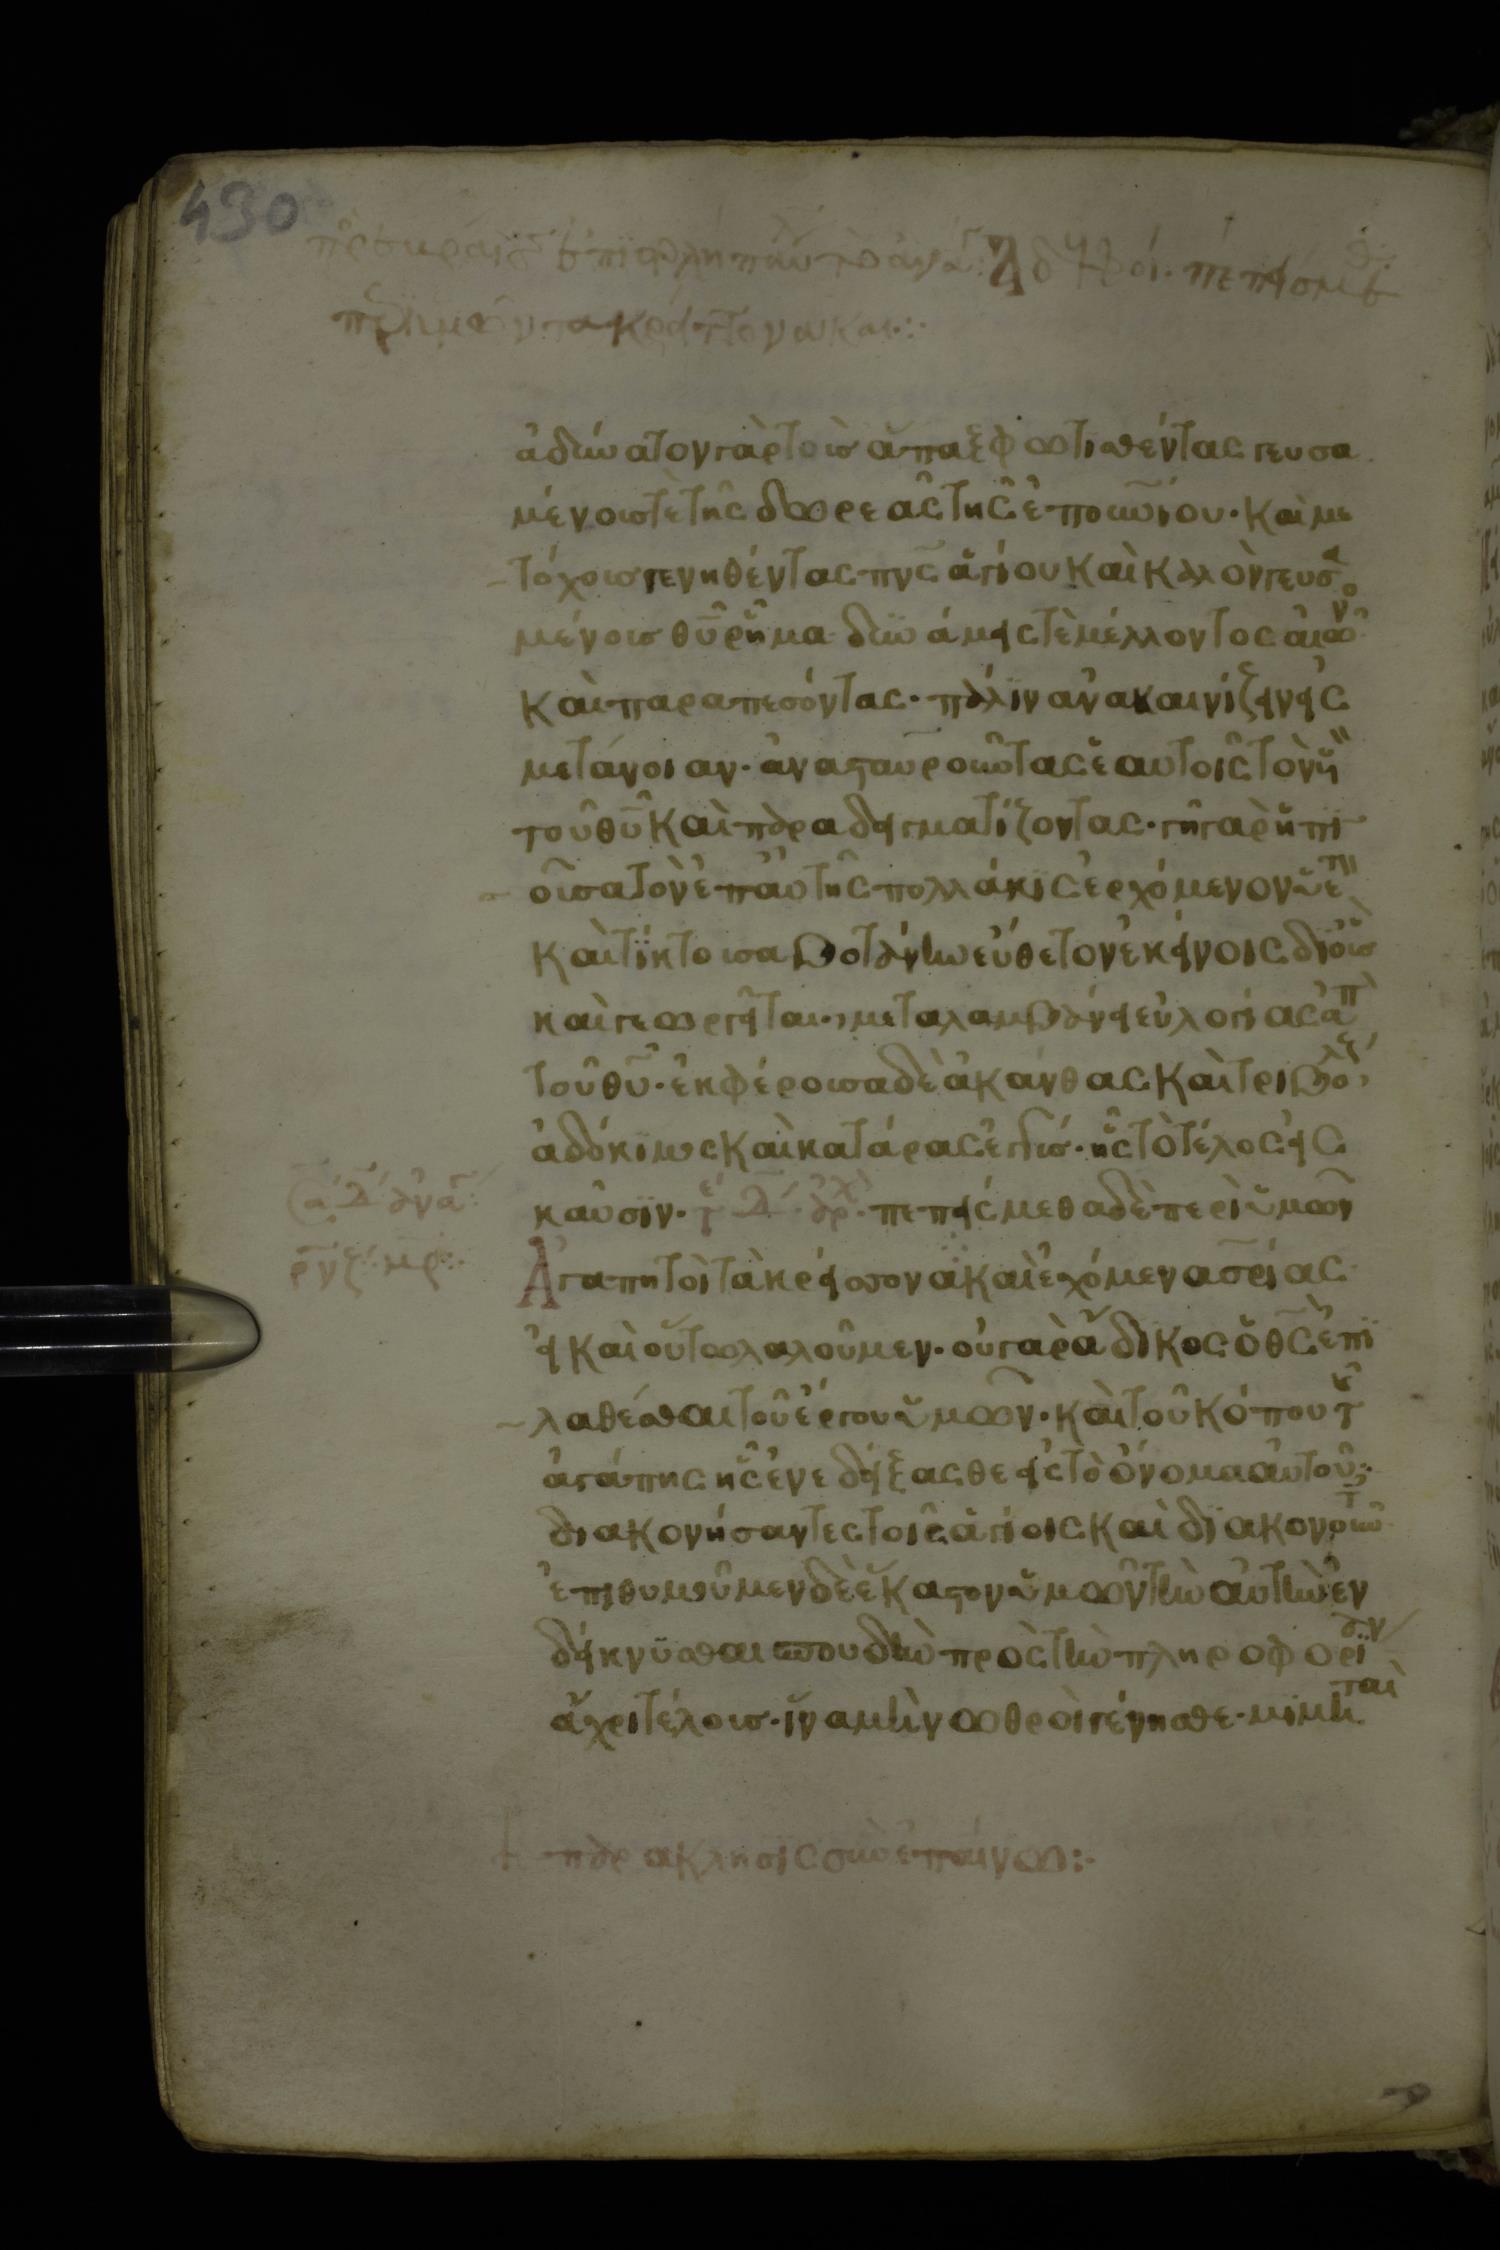 430
Ἀδελφοί. πεπείσμε
ἀδύνατον γὰρ τοὺς ἅπαξ φωτισθέντας γευσα
μένους τε τῆς δωρεᾶς τῆς ἐπουνίου· καὶ με
τόχους γενηθέντας πνς ἁγίου καὶ καλὸν γευσα
μένους θυ ῥῆμα δυνάμεις τε μέλλοντος αἰῶνο
καὶ παραπεσόντας· πάλιν ἀνακαινίζειν εἰς
μετάνοιαν· ἀνασταυροῦντας ἑαυτοῖς τὸν υν
τοῦ θυ καὶ παραδειγματίζοντας· γῆ γὰρ ἡ πι
οῦσα τὸν ἐπ' αὐτῆς πολλάκις ἐρχόμενον ὑετὸ
καὶ τίκτουσα βοτάνην εὔθετον ἐκείνοις δι' οὓς
καὶ γεωργεῖται· μεταλαμβάνει εὐλογίας ἀπὸ
τοῦ θυ· ἐκφέρουσα δὲ ἀκάνθας καὶ τριβόλ
ἀδόκιμος καὶ κατάρας ἐγγύς· ἧς τὸ τέλος εἰς
καῦσιν· πεπείσμεθα δὲ περὶ ὑμῶν
Ἀγαπητοὶ τὰ κρείσσονα καὶ ἐχόμενα σρίας
εἰ καὶ οὕτω λαλοῦμεν· οὐ γὰρ ἄδικος ὁ θς ἐπι
λαθέσθαι τοῦ ἔργου ὑμῶν· καὶ τοῦ κόπου τῆ
ἀγάπης ἧς ἐνεδείξασθε εἰς τὸ ὄνομα αὐτοῦ·
διακονήσαντες τοῖς ἁγίοις καὶ διακονοῦντ
ἐπιθυμοῦμεν δὲ ἕκαστον ὑμῶν τὴν αὐτὴν ἐν
δείκνυσθαι σπουδὴν πρὸς τὴν πληροφορί
ἄχρι τέλους· ἵνα μὴ νωθροὶ γένησθε· μιμηταὶ
παράκλησις σὺν ἐπαίνω: